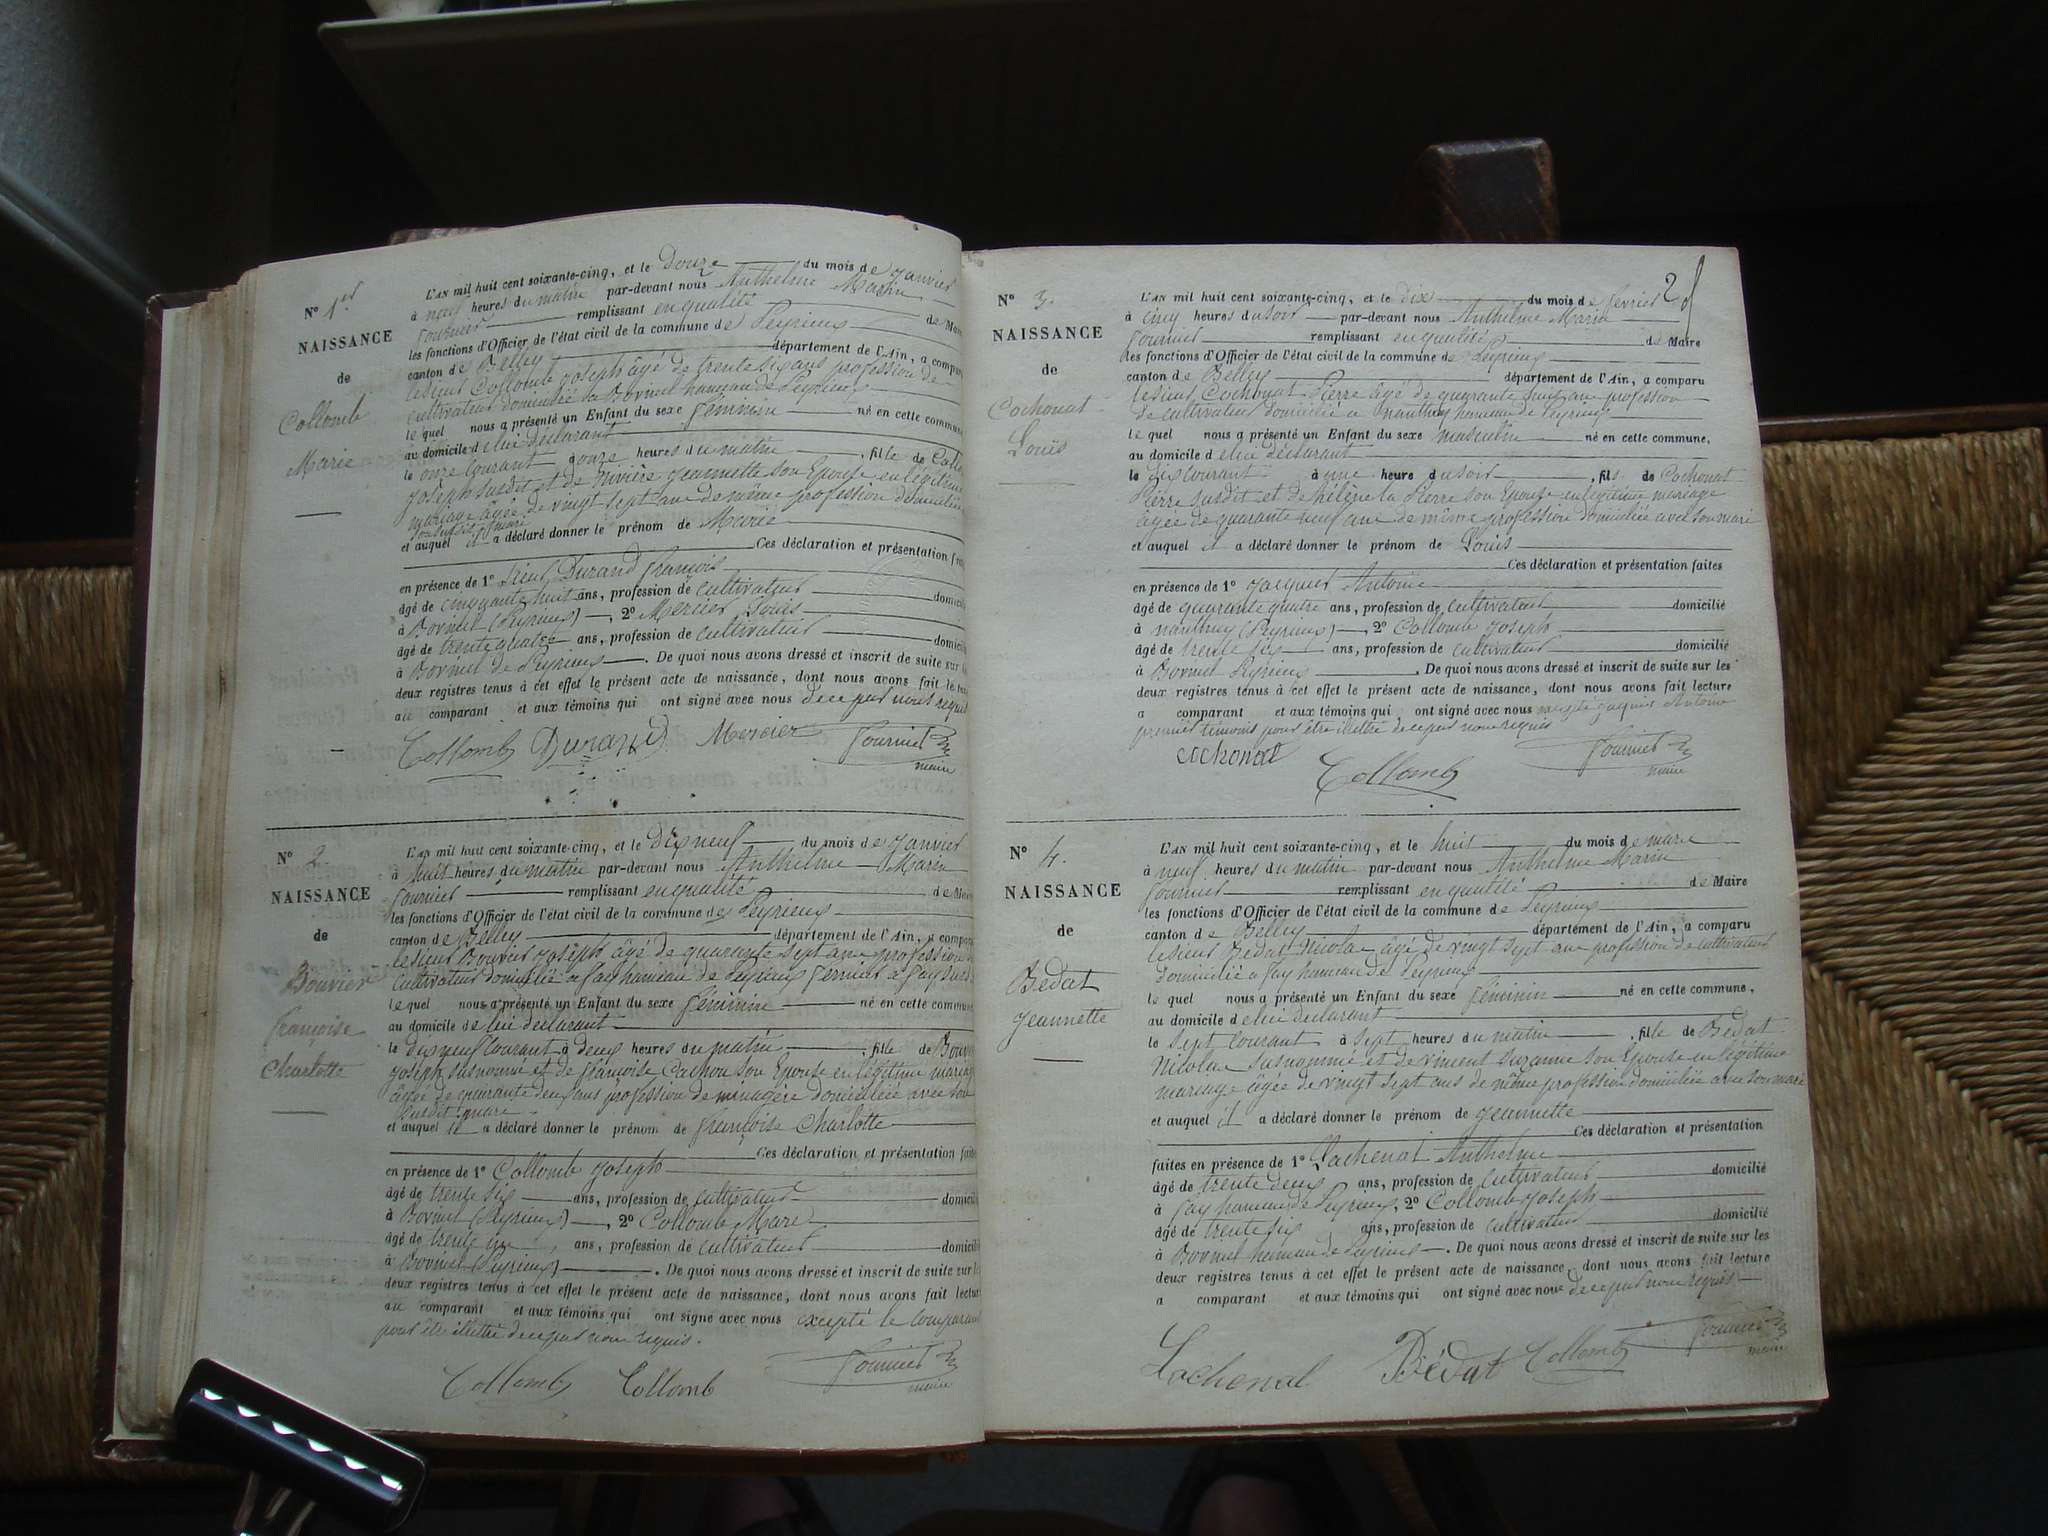 N° 1er
NAISSANCE
de
Collomb
Marie
L'AN mil huit cent soixante-cinq, et le Douze du mois de janvier
à neuf heures du matin par-devant nous Anthelme Marin
Fournier remplissant en qualité de Maire
les fonctions d'Officier de l'état civil de la commune de Peyrieux
canton de Belley département de l'Ain, a comparu
le sieur Collomb joseph âgé de trente six ans profession de
cultivateur domicilié a hameau de Peyrieux
le quel nous a présenté un Enfant du sexe féminin né en cette commune
au domicile de lui déclarant
le onze courant à onze heures du matin , fille de
joseph susdit et de Rivière jeannette son Epouse en légitime
mariage âgée de vingt sept ans de même profession domiciliée
et auquel il a déclaré donner le prénom de Marie
Ces déclaration et présentation
en présence de 1° Sieur Durand françois
âgé de cinquante huit ans, profession de cultivateur
à (Peyrieux) , 2° Mercier Louis
âgé de trente quatre ans, profession de cultivateur
à de Peyrieux . De quoi nous avons dressé et inscrit de suite sur
deux registres tenus à cet effet le présent acte de naissance, dont nous avons fait
au comparant et aux témoins qui ont signé avec nous de ce par nous requis
Collomb Durand Mercier Fournier
maire
N° 2.
NAISSANCE
de
Bouvier
françoise
Charlotte
L'AN mil huit cent soixante-cinq, et le Dix neuf du mois de janvier
à huit heures du matin par-devant nous Anthelme Marin
Fournier remplissant en qualité de Maire
les fonctions d'Officier de l'état civil de la commune de Peyrieux
canton de Belley département de l'Ain, a comparu
le sieur Bouvier joseph âgé de quarante sept ans profession
cultivateur domicilié a fay hameau de Peyrieux fermier a fay
le quel nous a présenté un Enfant du sexe féminin né en cette commune
au domicile de lui déclarant
le dix neuf courant à deux heures du matin , fille de
joseph susnommé et de françoise Cachou son Epouse en légitime mariage
âgée de quarante deux ans profession de ménagère domiciliée avec son
susdit mari
et auquel il a déclaré donner le prénom de françoise Charlotte
Ces déclaration et présentation faites
en présence de 1° Collomb joseph
âgé de trente six ans, profession de cultivateur
à (Peyrieux) , 2° Collomb Marc
âgé de trente , ans, profession de cultivateur
à (Peyrieux) . De quoi nous avons dressé et inscrit de suite sur
deux registres tenus à cet effet le présent acte de naissance, dont nous avons fait lecture
au comparant et aux témoins qui ont signé avec nous excepté le comparant
pour être illettré de ce par nous requis.
Collomb Collomb Fournier
maire
2
N° 3.
NAISSANCE
de
Cochonat
Louis
L'AN mil huit cent soixante-cinq, et le dix du mois de fevrier
à cinq heures du soir par-devant nous Anthelme Marin
Fournier remplissant en qualité de Maire
les fonctions d'Officier de l'état civil de la commune de Peyrieux
canton de Belley département de l'Ain, a comparu
le sieur Cochonat Pierre âgé de quarante ans profession
de cultivateur domicilié a Nanthuy hameau de Peyrieux
le quel nous a présenté un Enfant du sexe masculin né en cette commune,
au domicile de lui déclarant
le dix courant à une heure du soir , fils de Cochonat
Pierre susdit et de hélène la Pierre son Epouse en légitime mariage
âgée de quarante neuf ans de même profession domiciliée avec son mari
et auquel il a déclaré donner le prénom de Louis
Ces déclaration et présentation faites
en présence de 1° jacquet Antoine
âgé de quarante quatre ans, profession de cultivateur domicilié
à nanthuy (Peyrieux) , 2° Collomb joseph
âgé de trente six ans, profession de cultivateur domicilié
à Peyrieux . De quoi nous avons dressé et inscrit de suite sur les
deux registres tenus à cet effet le présent acte de naissance, dont nous avons fait lecture
a comparant et aux témoins qui ont signé avec nous excepté jacquet Antoine
premier témoin pour être illettré de ce par nous requis
cochonat Collomb Fournier
maire
N° 4.
NAISSANCE
de
Bédat
jeannette
L'AN mil huit cent soixante-cinq, et le huit du mois de mars
à neuf heures du matin par-devant nous Anthelme Marin
Fournier remplissant en qualité de Maire
les fonctions d'Officier de l'état civil de la commune de Peyrieux
canton de Belley département de l'Ain, a comparu
le sieur Bédat Nicolas âgé de vingt sept ans profession de cultivateur
domicilié a fay hameau de Peyrieux
le quel nous a présenté un Enfant du sexe féminin né en cette commune,
au domicile de lui déclarant
le sept courant à sept heures du matin , fille de Bédat
Nicolas susnommé et de vincent suzanne son Epouse en légitime
mariage âgée de vingt sept ans de même profession domiciliée avec son mari
et auquel il a déclaré donner le prénom de jeannette
Ces déclaration et présentation
faites en présence de 1° Lachenal Anthelme
âgé de trente deux ans, profession de cultivateur domicilié
à fay hameau de Peyrieux, 2° Collomb joseph
âgé de trente six ans, profession de cultivateur domicilié
à hameau de Peyrieux . De quoi nous avons dressé et inscrit de suite sur les
deux registres tenus à cet effet le présent acte de naissance, dont nous avons fait lecture
a comparant et aux témoins qui ont signé avec nous de ce par nous requis
Lachenal Bédat Collomb Fournier
maire